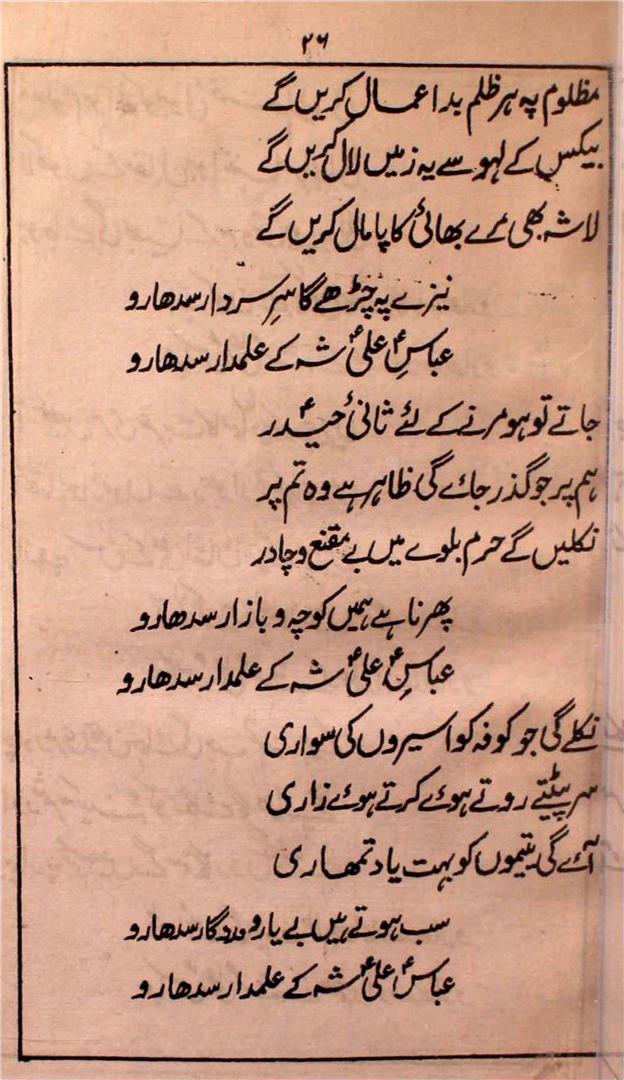 ۲۶
مظلوم پہ ہر ظلم بد اعمال کریں گے
بیکس کے لہو سے یہ زمیں لال کریں گے
لاشہ بھی مرے بھائی کا پامال کریں گے
نیزے پہ چڑھے گا سرِ سردار سدھارو
عباسِؑ علیؑ شہ کے علمدار سدھارو
جاتے تو ہو مرنے کے لئے ثانیٔ حیدرؑ
ہم پر جو گذر جائے گی ظاہر ہے وہ تم پر
نکلیں گے حرم بلوے میں بے مقنع و چادر
پھرنا ہے ہمیں کوچہ و بازار سدھارو
عباسِؑ علیؑ شہ کے علمدار سدھارو
نکلے گی جو کوفہ کو اسیروں کی سواری
سر پیٹتے روتے ہوئے کرتے ہوئے زاری
آئے گی یتیموں کو بہت یاد تمھاری
سب ہوتے ہیں بے یار و مددگار سدھارو
عباسؑ علیؑ شہ کے علمدار سدھارو